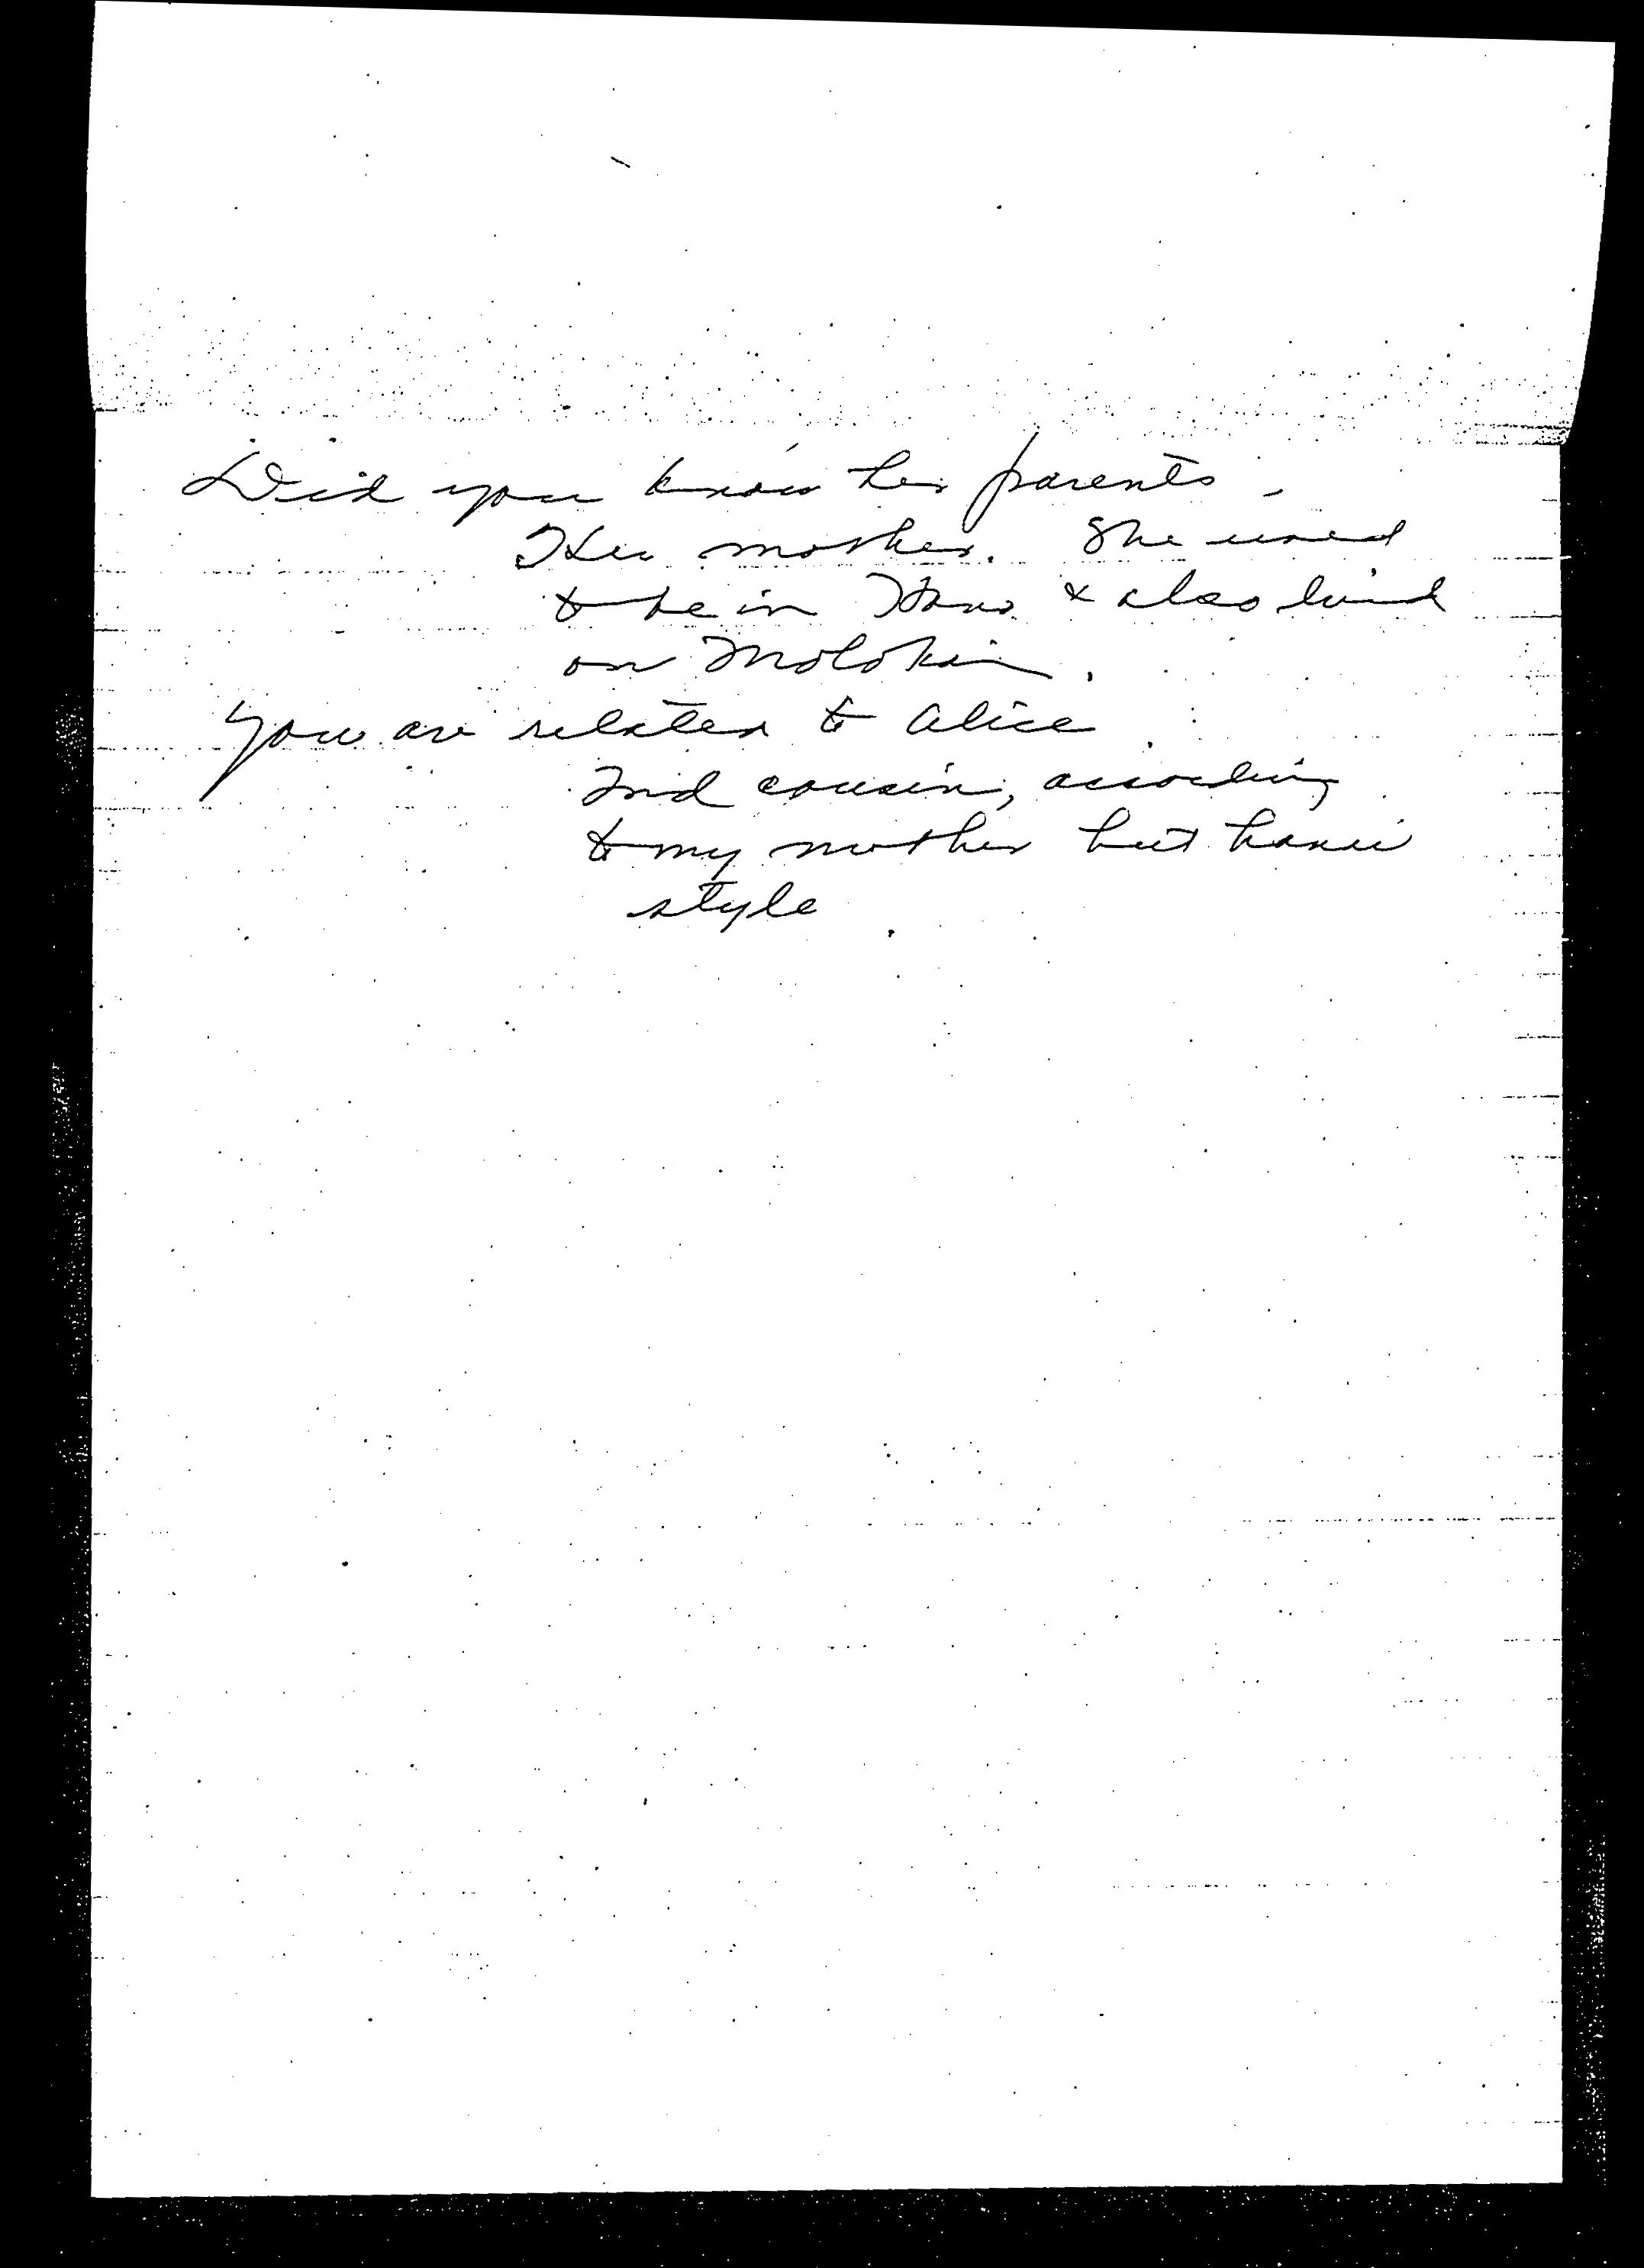 Did you know her parents.
Her mother. She used
to be in Hana & also lived
on Molokai.
You are related to Alice
2nd cousin, according
to my mother but hanai
style